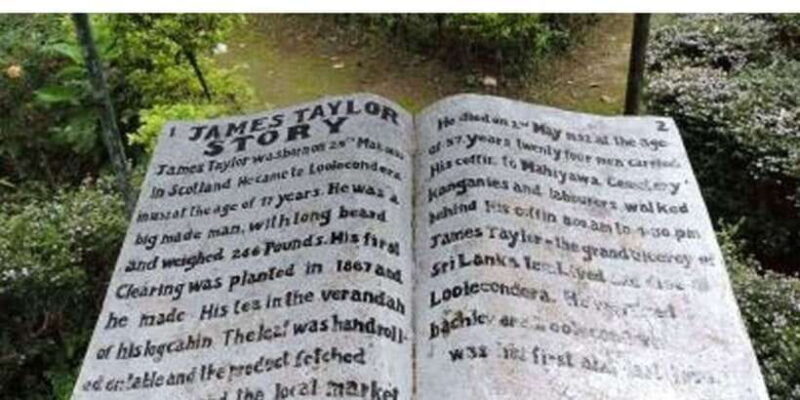 1 JAMES TAYLOR
STORY
James Taylor was born on 29th Mar.
in Scotland. He came to Loolecondera
must at the age of 17 years. He was a
big made man, with long beard
and weighed 246 Pounds. His first
Clearing was planted in 1867 and
he made His tea in the verandah
of his logcabin. The leaf was handroll-
ed on table and the product fetched
the local market
2
He died on 2nd May 1892 at the age
of 57 years twenty four men carried
His coffin to Mahiyawa Cemetery
kanganies and labourers walked
behind His coffin 8.00 am to 4.30 pm
James Taylor - the grand viceroy of
Sri Lanka tea. Lived
Loolecondera. He
was his first and last love.